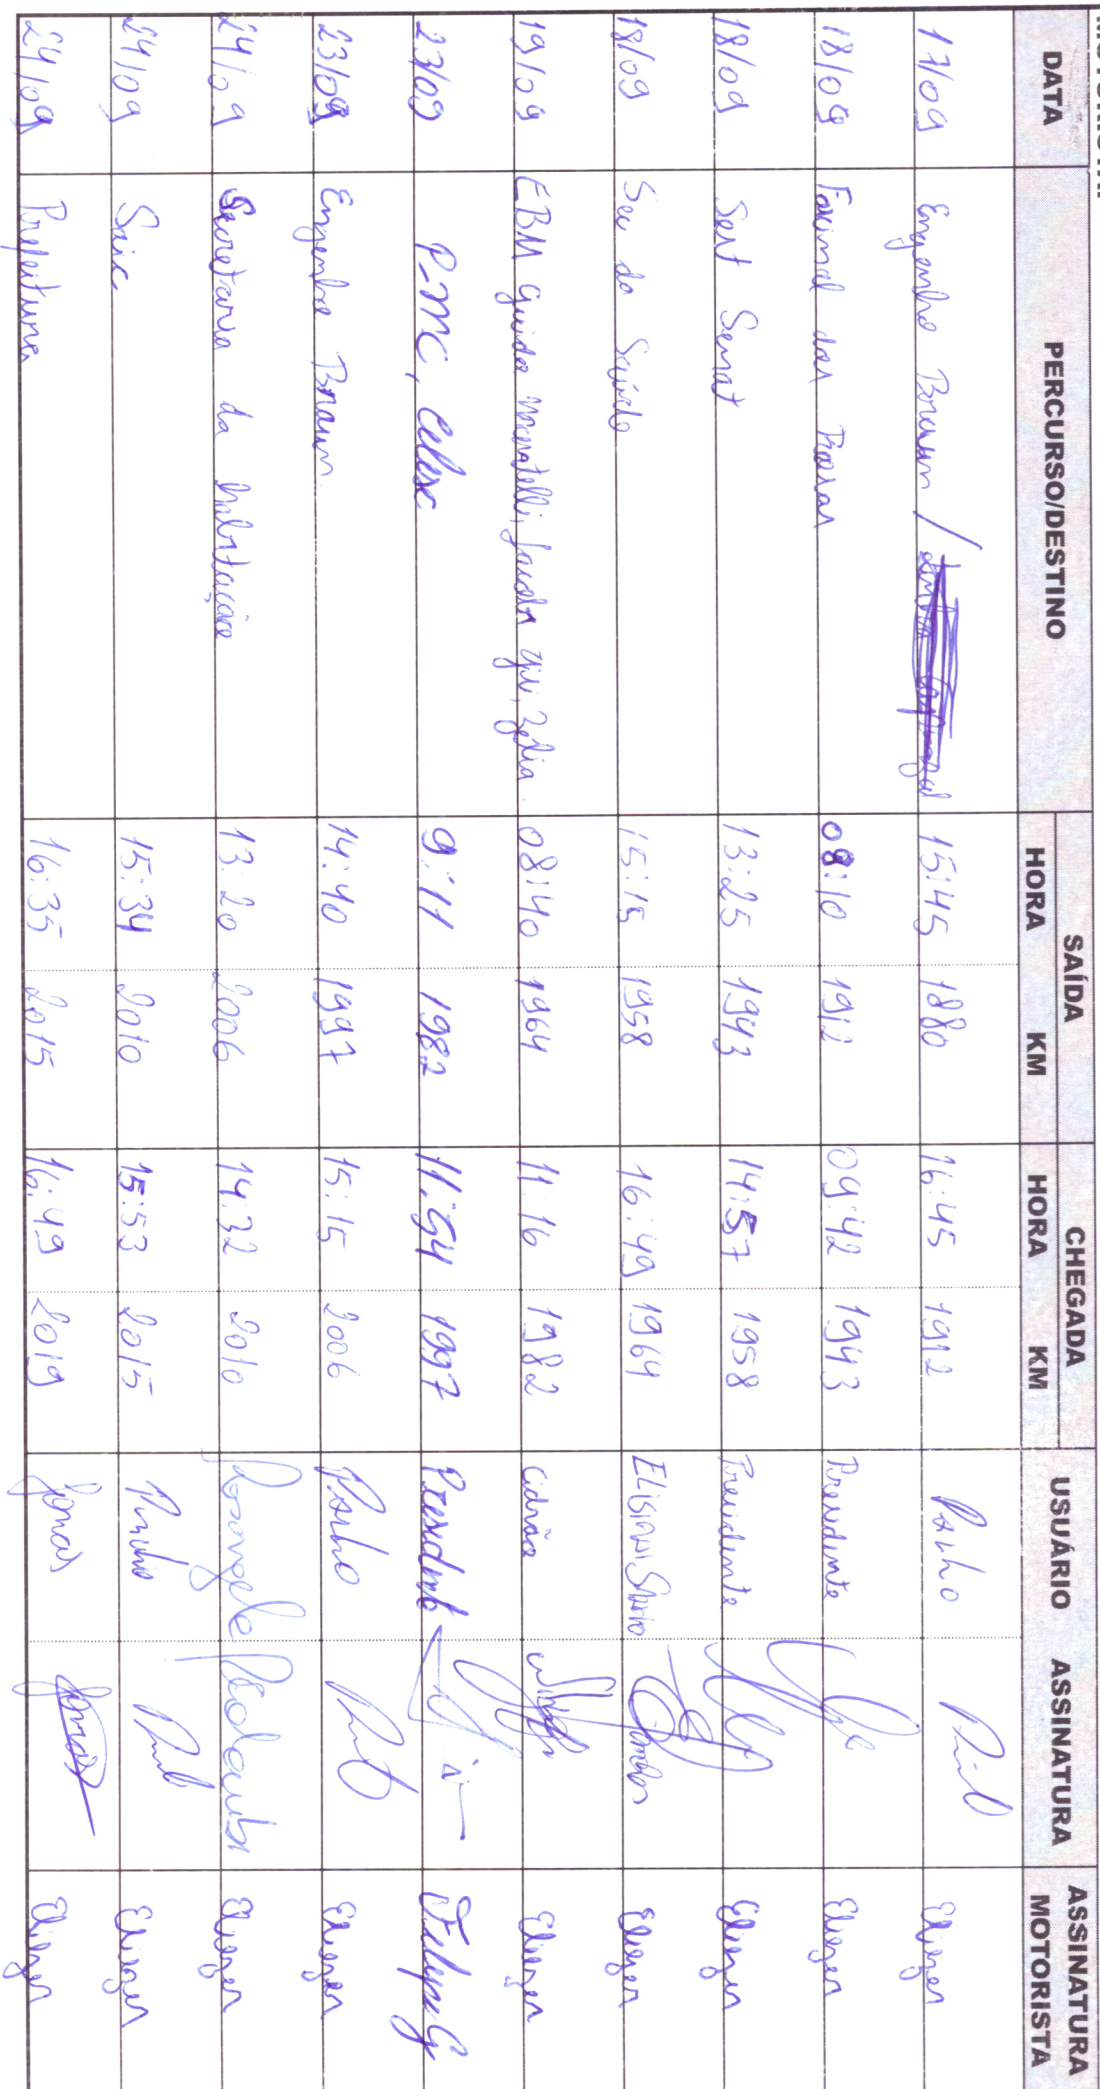 MOTORISTA:
DATA PERCURSO/DESTINO SAÍDA CHEGADA USUÁRIO ASSINATURA ASSINATURA MOTORISTA
HORA KM HORA KM
17/09 Engenho Braun / 15:45 1880 16:45 1912 Eliezer
18/09 Faxinal dos Rosas 08:10 1912 09:42 1943 Presidente Eliezer
18/09 Sest Senat 13:25 1943 14:57 1958 Presidente Eliezer
18/09 Sec da Saúde 15:15 1958 16:49 1964 Elisiani Eliezer
19/09 EBM Guido Zélia 08:40 1964 11:16 1982 Cidnão Eliezer
23/09 P-MC, Celesc 9:11 1982 11:54 1997 Presidente Felype G
23/09 Engenho Braun 14:40 1997 15:15 2006 Eliezer
24/09 Secretaria da habitação 13:20 2006 14:32 2010 Rosangela Eliezer
24/09 15:34 2010 15:53 2015 Eliezer
24/09 Prefeitura 16:35 2015 16:49 2019 Jonas Jonas Eliezer